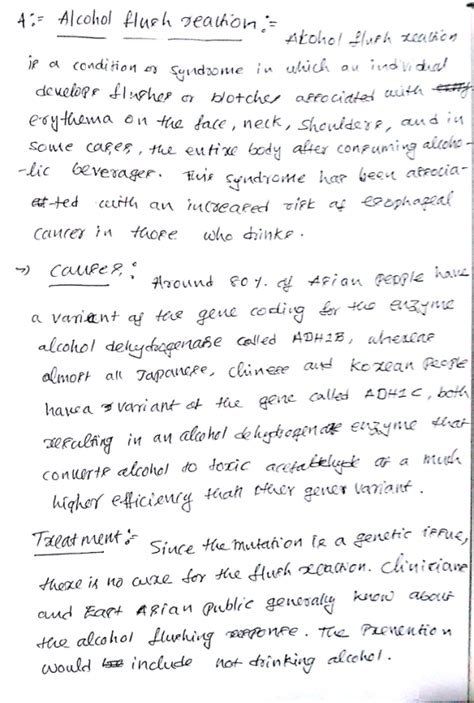 A:- Alcohol flush reaction:-
Alcohol flush reaction
is a condition or syndrome in which an individual
develops flushes or blotches associated with
erythema on the face, neck, shoulders, and in
some cases, the entire body after consuming alcoho-
-lic beverages. This syndrome has been associa-
-ted with an increased risk of esophageal
cancer in those who drinks.
→ Causes:
Around 80% of Asian people have
a variant of the gene coding for the enzyme
alcohol dehydrogenase called ADH1B, whereas
almost all Japanese, Chinese and Korean people
have a variant of the gene called ADH1C, both
resulting in an alcohol dehydrogenase enzyme that
converts alcohol to toxic acetaldehyde at a much
higher efficiency than other genes variant.
Treatment:-
Since the mutation is a genetic issue,
there is no cure for the flush reaction. Clinicians
and East Asian public generally know about
the alcohol flushing response. The Prevention
would include not drinking alcohol.